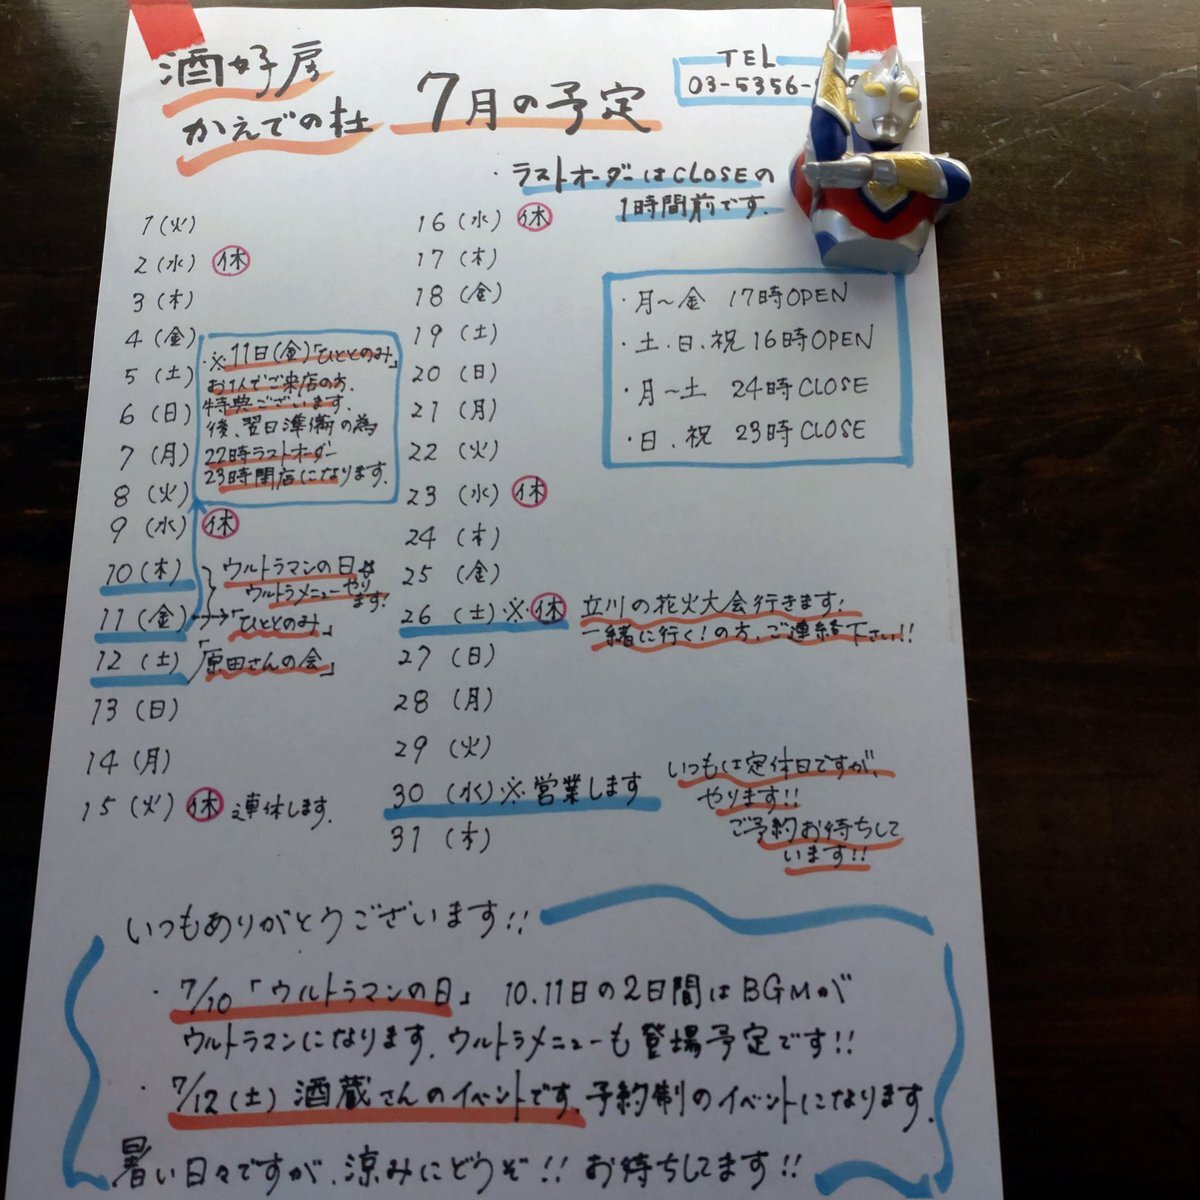 酒好房
かえでの杜
7月の予定
TEL
03-5356-
・ラストオーダーはCLOSEの
1時間前です.
1(火)
2(水) 休
3(木)
4(金)
5(土)
6(日)
7(月)
8(火)
9(水) 休
10(木)
11(金)
12(土)
13(日)
14(月)
15(火) 休 連休します.
※11日(金)「ひととのみ」
お1人でご来店の方、
特典ございます.
後、翌日準備の為
22時ラストオーダー
23時閉店になります.
ウルトラマンの日
ウルトラメニューやり
ます!
「ひととのみ」
「原田さんの会」
16(水) 休
17(木)
18(金)
19(土)
20(日)
21(月)
22(火)
23(水) 休
24(木)
25(金)
26(土)※休 立川の花火大会行きます!
一緒に行く!の方、ご連絡下さい!!
27(日)
28(月)
29(火)
30(水)※営業します
31(木)
いつもは定休日ですが、
やります!!
ご予約お待ちして
います!!
・月〜金 17時OPEN
・土、日、祝 16時OPEN
・月〜土 24時CLOSE
・日、祝 23時CLOSE
いつもありがとうございます!!
・7/10「ウルトラマンの日」 10.11日の2日間はBGMが
ウルトラマンになります.ウルトラメニューも登場予定です!!
・7/12(土) 酒蔵さんのイベントです.予約制のイベントになります.
暑い日々ですが、涼みにどうぞ!! お待ちしてます!!